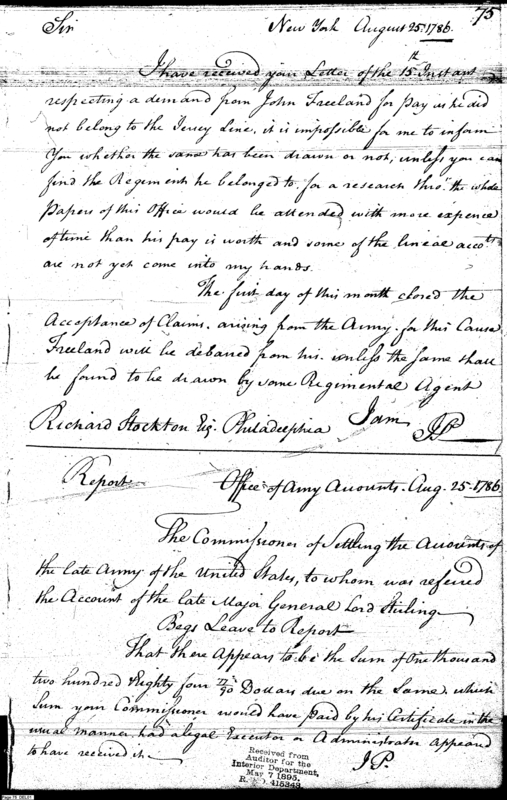 75
Sir New York August 25th 1786.
I have received your Letter of the 15th Instant
respecting a demand from John Freeland for Pay as he did
not belong to the Jersey Line, it is impossible for me to inform
You whether the same has been drawn or not; unless you can
find the Regiment he belonged to; for a research thro' the whole
Papers of this Office would be attended with more expence
of time than his pay is worth and some of the lineal accots
are not yet come into my hands.
The first day of this month closed the
Acceptance of Claims, arising from the Army, for this Cause
Freeland will be debarred from his, unless the same shall
be found to be drawn by some Regimental Agent
Richard Stockton Esq. Philadelphia I am JP
Report Office of Army Accounts. Aug. 25. 1786
The Commissioner of Settling the Accounts of
the late Army of the United States, to whom was referred
the Account of the late Major General Lord Stirling
Begs Leave to Report
That there appears to be the Sum of One thousand
two hundred Eighty four 72/90 Dollars due on the Same, which
Sum your Commissioner would have paid by his Certificate in the
usual manner, had a legal Executor or Administrator appeared
to have received it. JP.
Received from
Auditor for the
Interior Department,
May 7 1895.
R. 415343